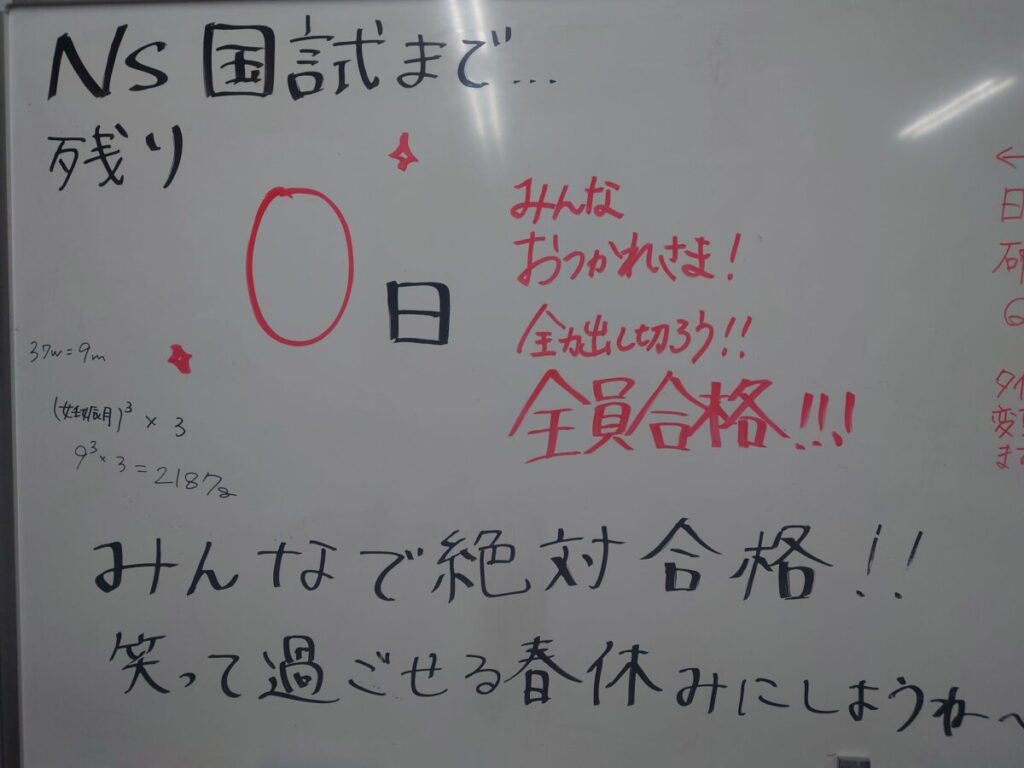 NS 国試まで...
残り
0日
みんな
おつかれさま!
全力出し切ろう!!
全員合格!!!
37w=9m
(妊娠月)³ × 3
9³×3=2187g
みんなで絶対合格!!
笑って過ごせる春休みにしようね〜
←
日
研
タイ
変更
ます